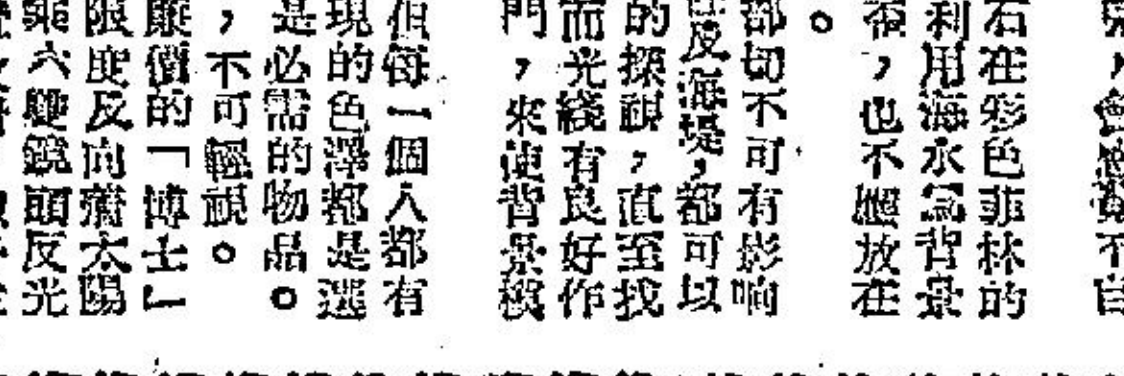 不自
石在彩色菲林的
利用海水為背景
，也不應放在
。
都切不可有影响
反海堤，都可以
的探視，直至找
而光綫有良好作
門，來使背景模
但每一個人都有
現的色澤都是選
是必需的物品。
，不可輕視。
廉價的「博士」
限度反向着太陽
六雙鏡頭反光